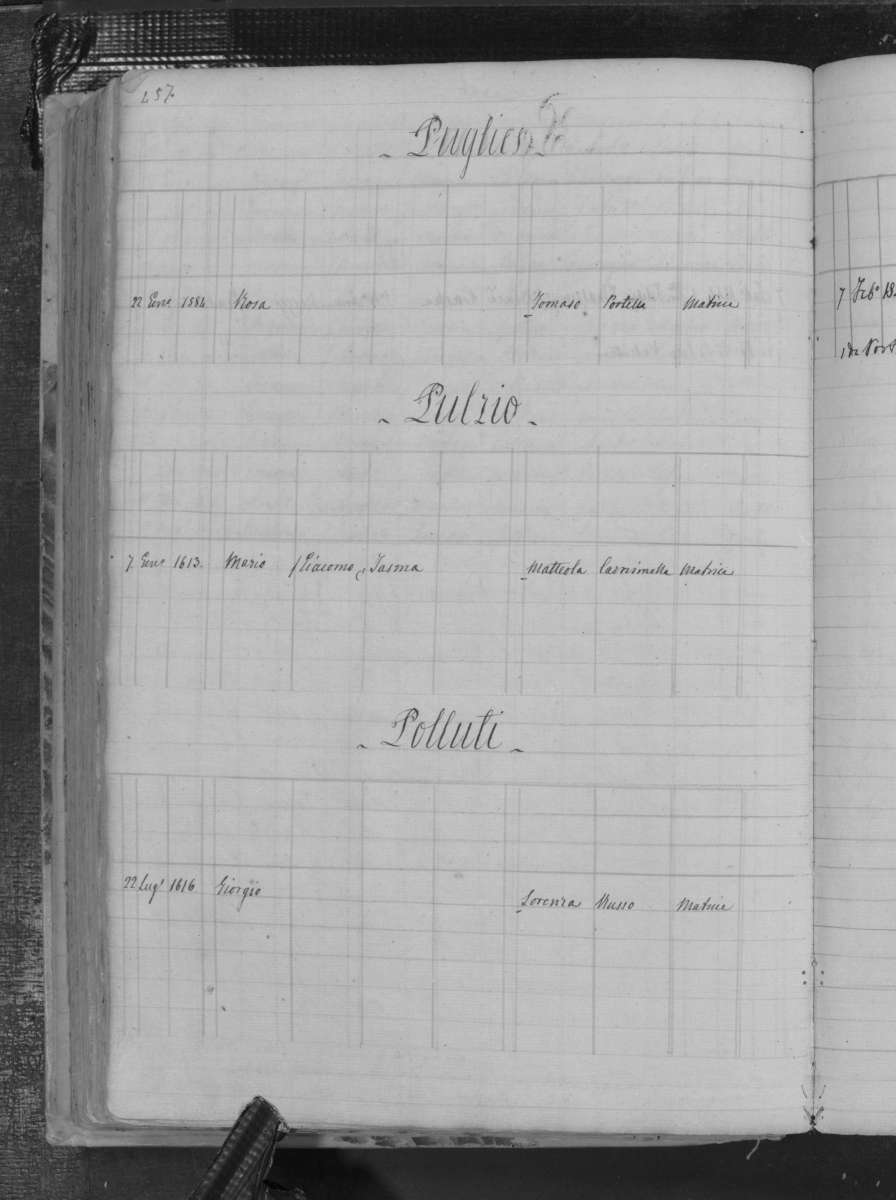 257.
- Pugliesi
22 Enn° 1584 Rosa Tomaso Portella Matrice
7 Feb° 18
- Pulzio -
7 Genn° 1613. Mario f Giacomo e Jasma Matteola Carnimella Matrice
- Polluti -
22 Lugl° 1616 Giorgio Lorenza Russo Matrice